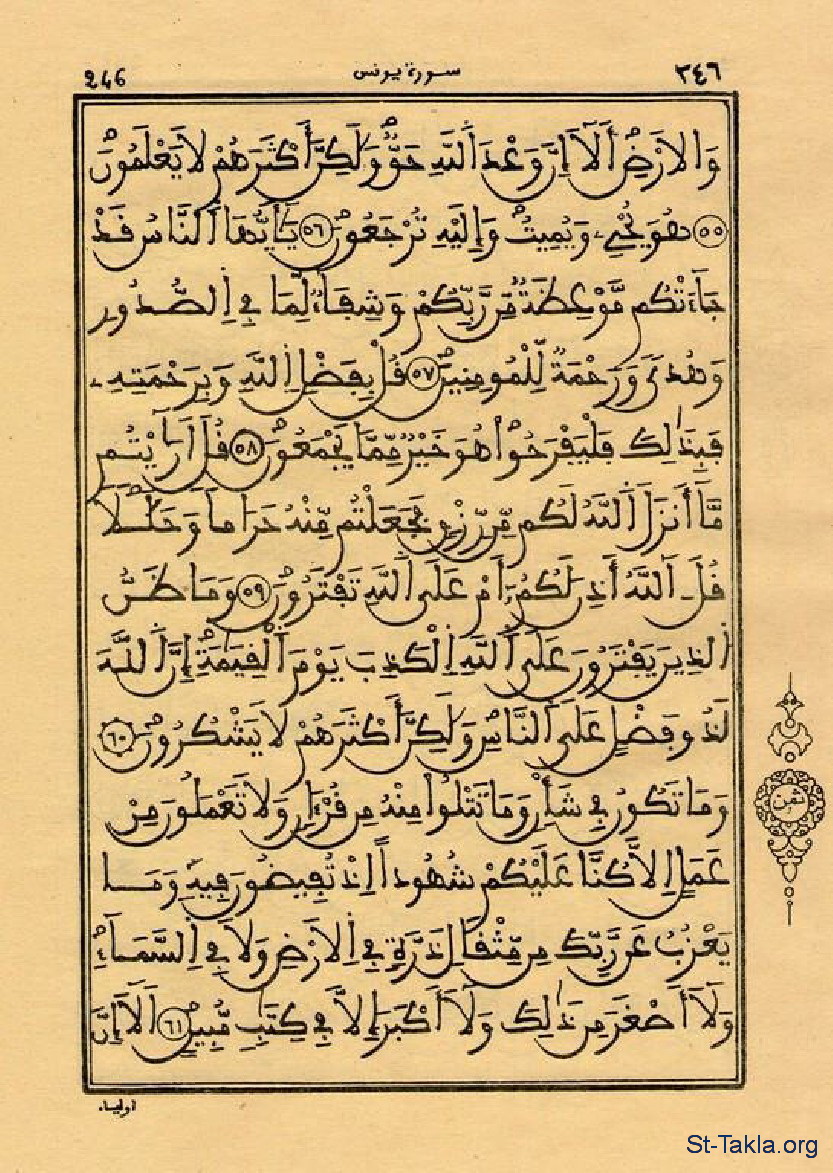 ٢٤٦ سورة يونس 246
وَالَارْضِ أَلَآ إِنَّ وَعْدَ اَللَّهِ حَقٌّ وَلَٰكِنَّ أَكْثَرَهُمْ لَا يَعْلَمُونَ
٥٥ هُوَ يُحْيِۦ وَيُمِيتُ وَإِلَيْهِ تُرْجَعُونَ ٥٦ يَٰٓأَيُّهَا اَلنَّاسُ قَدْ
جَآءَتْكُم مَّوْعِظَةٌ مِّن رَّبِّكُمْ وَشِفَآءٌ لِّمَا فِي اِلصُّدُورِ
وَهُدىً وَرَحْمَةٌ لِّلْمُومِنِينَ ٥٧ قُلْ بِفَضْلِ اِللَّهِ وَبِرَحْمَتِهِۦ
فَبِذَٰلِكَ فَلْيَفْرَحُواْ هُوَ خَيْرٌ مِّمَّا يَجْمَعُونَ ٥٨ قُلَ اَرَٰٓيْتُم
مَّآ أَنزَلَ اَللَّهُ لَكُم مِّن رِّزْقٍ فَجَعَلْتُم مِّنْهُ حَرَاماً وَحَلَٰلاً
قُلَ ـ آللَّهُ أَذِنَ لَكُمُۥٓ أَمْ عَلَى اَللَّهِ تَفْتَرُونَ ٥٩ وَمَا ظَنُّ
اُلذِينَ يَفْتَرُونَ عَلَى اَللَّهِ اِلْكَذِبَ يَوْمَ اَلْقِيَٰمَةِ إِنَّ اَللَّهَ
لَذُو فَضْلٍ عَلَى اَلنَّاسِ وَلَٰكِنَّ أَكْثَرَهُمْ لَا يَشْكُرُونَ ٦٠
وَمَا تَكُونُ فِي شَأْنٍ وَمَا تَتْلُواْ مِنْهُ مِن قُرْءَانٍ وَلَا تَعْمَلُونَ مِنْ
عَمَلٍ اِلَّا كُنَّا عَلَيْكُمْ شُهُوداً اِذْ تُفِيضُونَ فِيهِ وَمَا
يَعْزُبُ عَن رَّبِّكَ مِن مِّثْقَالِ ذَرَّةٍ فِي اِلَارْضِ وَلَا فِي اِلسَّمَآءِ
وَلَآ أَصْغَرَ مِن ذَٰلِكَ وَلَآ أَكْبَرَ إِلَّا فِي كِتَٰبٍ مُّبِينٍ ٦١ اَلَآ إِنَّ
ثمن
أولياء
St-Takla.org